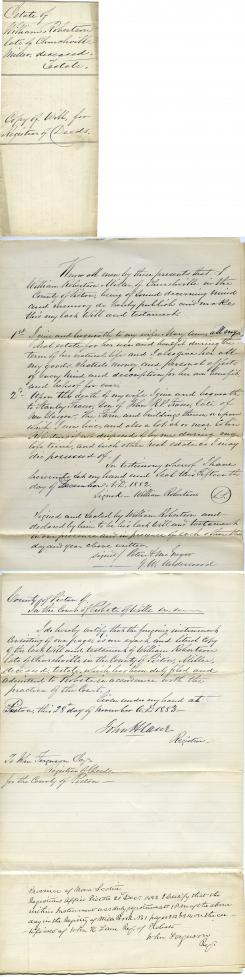 Estate of
William Robertson
late of Churchville
Miller, deceased.
Testate.
Copy of Will, for
Registrar of Deeds.
Know all men by these presents that I
William Robertson Miller of Churchville in the
County of Pictou, being of sound deserning mind
and memory do hereby publish and make
this my last Will and testament
1st I give and bequeath to my wife Mary Lowe all my
Real estate for her use and benefit during the
term of her natural life and I also give her all
my goods, chattels money and personal effects
of every kind and description for her own benefit
and behoof for ever.
2nd Upon the death of my wife I give and bequeath
to Stanley Fraser, son of
New Glasgow, the Farm and buildings thereon upon
which I now live, and also a lot
if not disposed of by me during my
life time, and each other real estate as I may
die possessed of.
In testimony whereof I have
hereunto set my hand and Seal this fifth
day of December A.D. 1882
Signed William Robertson
Signed and Sealed by William Robertson and
declared by him to be his last Will and testament
in our presence and in presence of each other the
day and year above written
Signed Peter A McGregor
G. W. Underwood
County of Pictou
In the Court of Probate
I do hereby certify that the foregoing instrument
consisting of one page is an exact and literal copy
of the last Will and testament of William Robertson
late of Churchville in the County of Pictou, Miller,
deceased, testate, which has been duly filed and
admitted to Probate in accordance with the
practice of the Court.
Given under my hand at
Pictou, this 28th day of November A.D. 1883
John H Lane
Registrar
To Wm. Ferguson Esq.
Registrar of Deeds
for the County of Pictou
Province of Nova Scotia
Registrars Office Pictou
within Instrument was duly registered at
day in the Registry of
of John H Lane Reg. of Probate
John Ferguson
Reg.